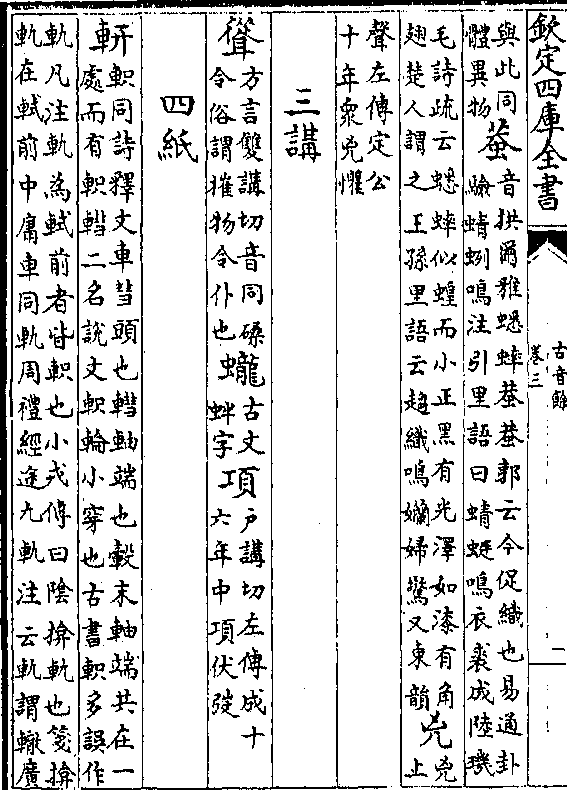 欽定四庫全書
古音餘
卷三
二
與此同
體異物
蛬
音拱爾雅蟋蟀蛬蛬郭云今促織也易通卦
驗蜻蛚鳴注引里語曰蜻蜓鳴衣裘成陸璣
毛詩疏云蟋蟀似蝗而小正黑有光澤如漆有角
翅楚人謂之王孫里語云趨織鳴嬾婦驚又東韻
兇
兇
上
聲左傳定公
十年衆兇懼
三講
聳
方言雙講切音同磉
令俗謂摧物令仆也
蠬
古文
蚌字
項
戶講切左傳成十
六年中項伏弢
四紙
軹同詩釋文車轊頭也轊軸端也轂末軸端共在一
處而有軹轊二名說文軹輪小穿也古書軹多誤作
軌凡注軌為軾前者皆軹也小戎傳曰陰揜軌也箋揜
軌在軾前中庸車同軌周禮經途九軌注云軌謂轍廣